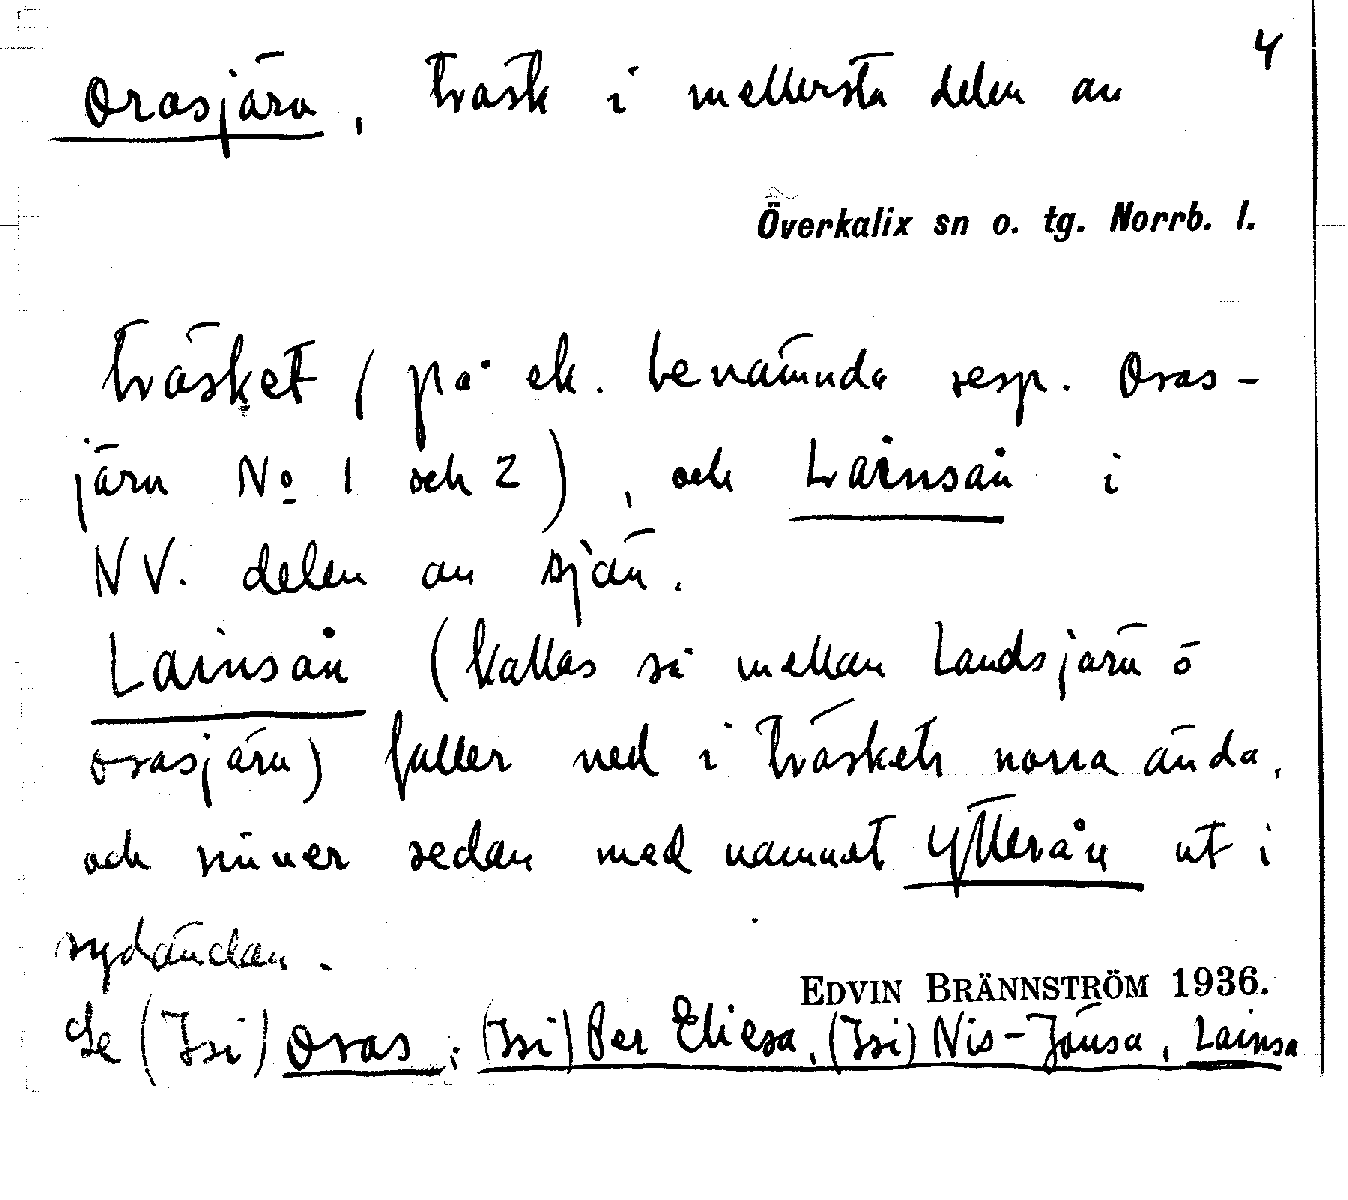 4
Orasjärv, träsk i mellersta delen av
Överkalix sn o. tg. Norrb. l.
träsket (på ek. benämnda resp. Oras-
järv No 1 och 2), och Lainsån i
NV. delen av sjön.
Lainsån (kallas så mellan Landsjärv o
Orasjärv) faller ned i träskets norra ända,
och rinner sedan med namnet Ytterån ut i
sydändan.
EDVIN BRÄNNSTRÖM 1936.
Se (Isi) Oras; (Isi) Per Eliesa, (Isi) Nis-Jönsa, Lainsa